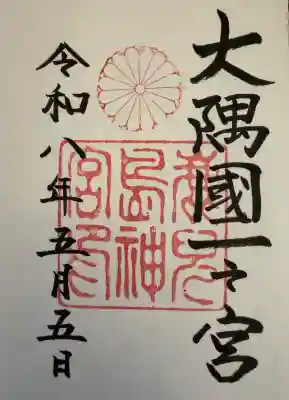 大隅國一之宮
鹿児
島神
宮印
令和八年五月五日